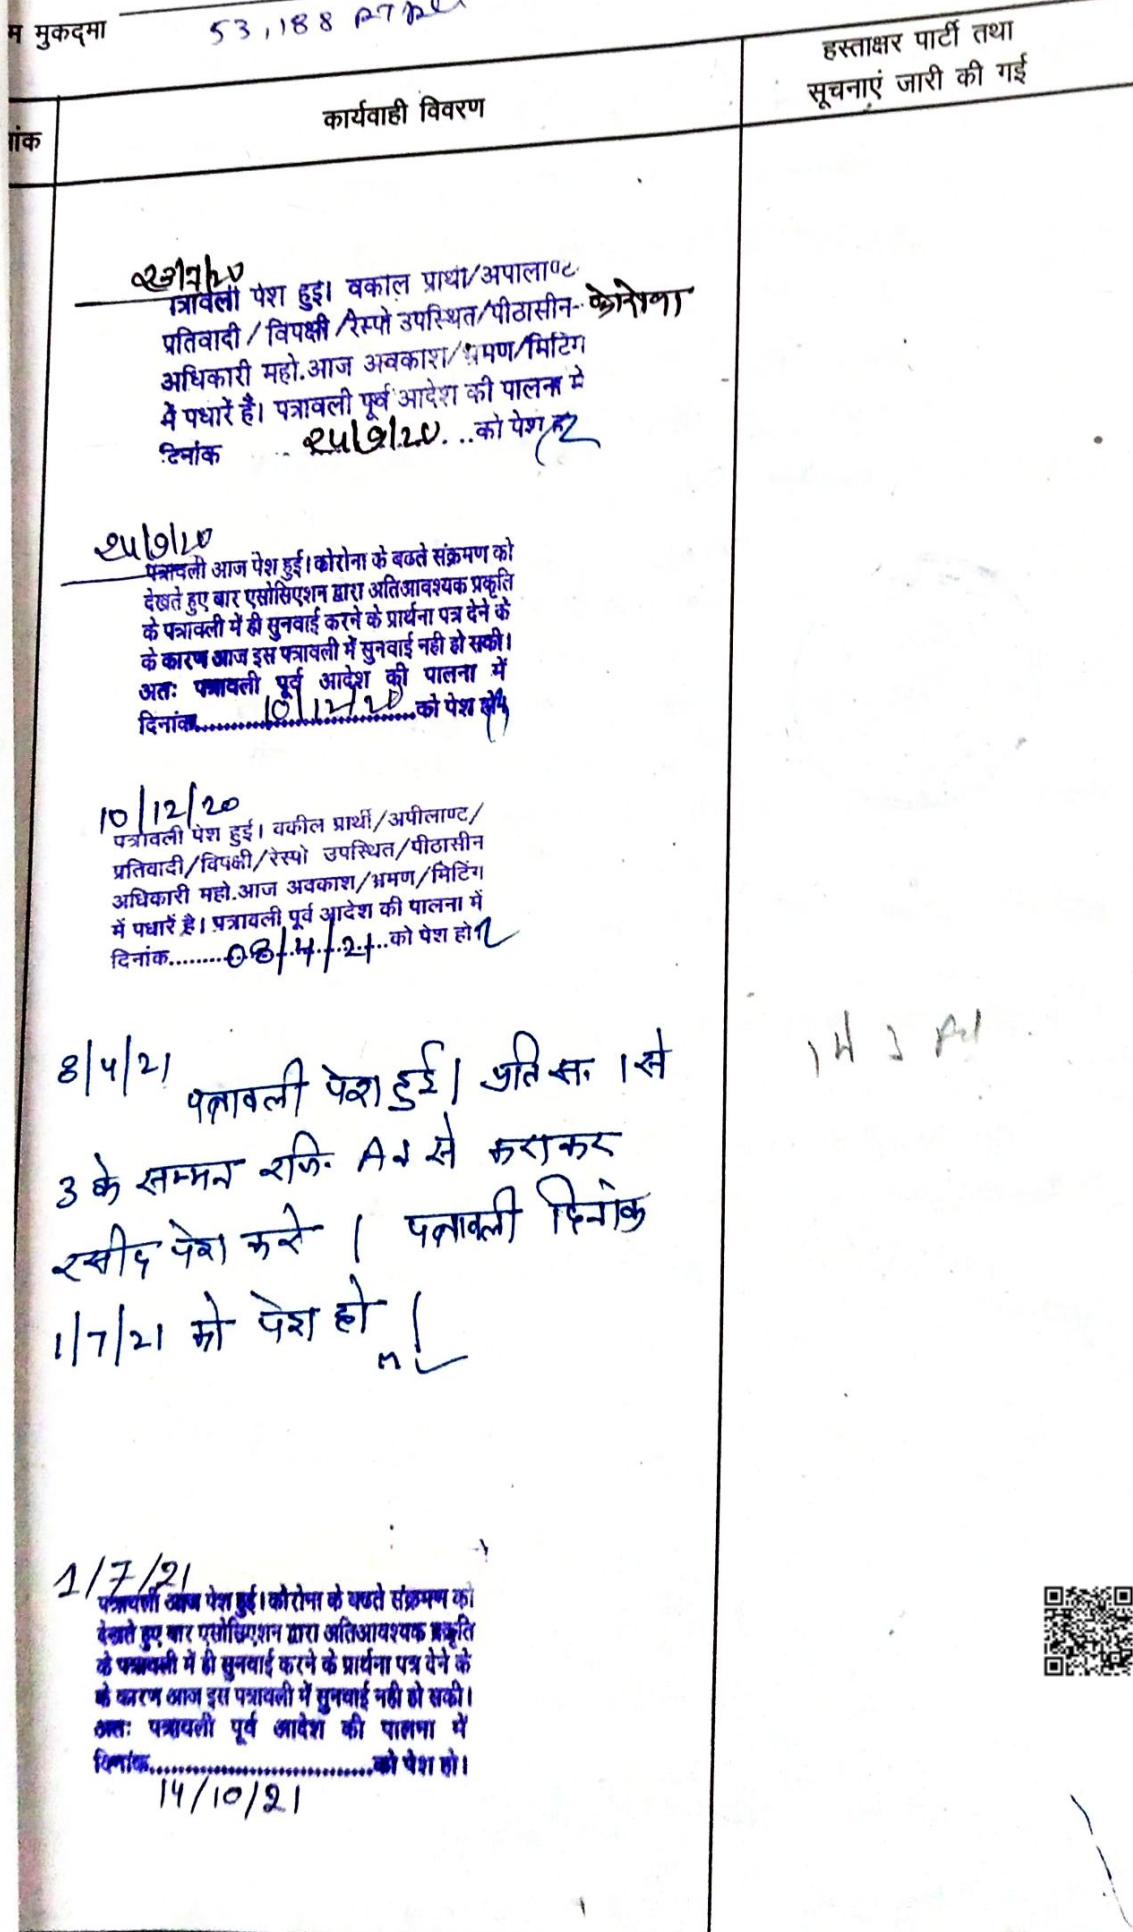 म मुकद्मा 53,188 RTAct
ांक
कार्यवाही विवरण
हस्ताक्षर पार्टी तथा
सूचनाएं जारी की गई
23/7/20
त्रावली पेश हुइ। वकाल प्राथी/अपालाण्ट
प्रतिवादी/विपक्षी/रेस्पो उपस्थित/पीठासीन कोरोना
अधिकारी महो.आज अवकाश/भ्रमण/मिटिंग
में पधारें है। पत्रावली पूर्व आदेश की पालना मे
दिनांक 24/9/20...को पेश हो
24/9/20
पत्रावली आज पेश हुई। कोरोना के बढते संक्रमण को
देखते हुए बार एसोसिएशन द्वारा अतिआवश्यक प्रकृति
के पत्रावली में ही सुनवाई करने के प्रार्थना पत्र देने के
के कारण आज इस पत्रावली में सुनवाई नही हो सकी।
अतः पत्रावली पूर्व आदेश की पालना में
दिनांक......10/12/20......को पेश हो।
10/12/20
पत्रावली पेश हुई। वकील प्रार्थी/अपीलाण्ट/
प्रतिवादी/विपक्षी/रेस्पो उपस्थित/पीठासीन
अधिकारी महो.आज अवकाश/भ्रमण/मिटिंग
में पधारें है। पत्रावली पूर्व आदेश की पालना में
दिनांक.........08/4/21...को पेश हो
8/4/21 पत्रावली पेश हुई। प्रति सं. 1 से
3 के सम्मन रजि. AD से कराकर
रसीद पेश करे। पत्रावली दिनांक
1/7/21 को पेश हो।
1/7/21
पत्रावली आज पेश हुई। कोरोना के बढते संक्रमण को
देखते हुए बार एसोसिएशन द्वारा अतिआवश्यक प्रकृति
के पत्रावली में ही सुनवाई करने के प्रार्थना पत्र देने के
के कारण आज इस पत्रावली में सुनवाई नही हो सकी।
अतः पत्रावली पूर्व आदेश की पालना में
दिनांक..............................को पेश हो।
14/10/21